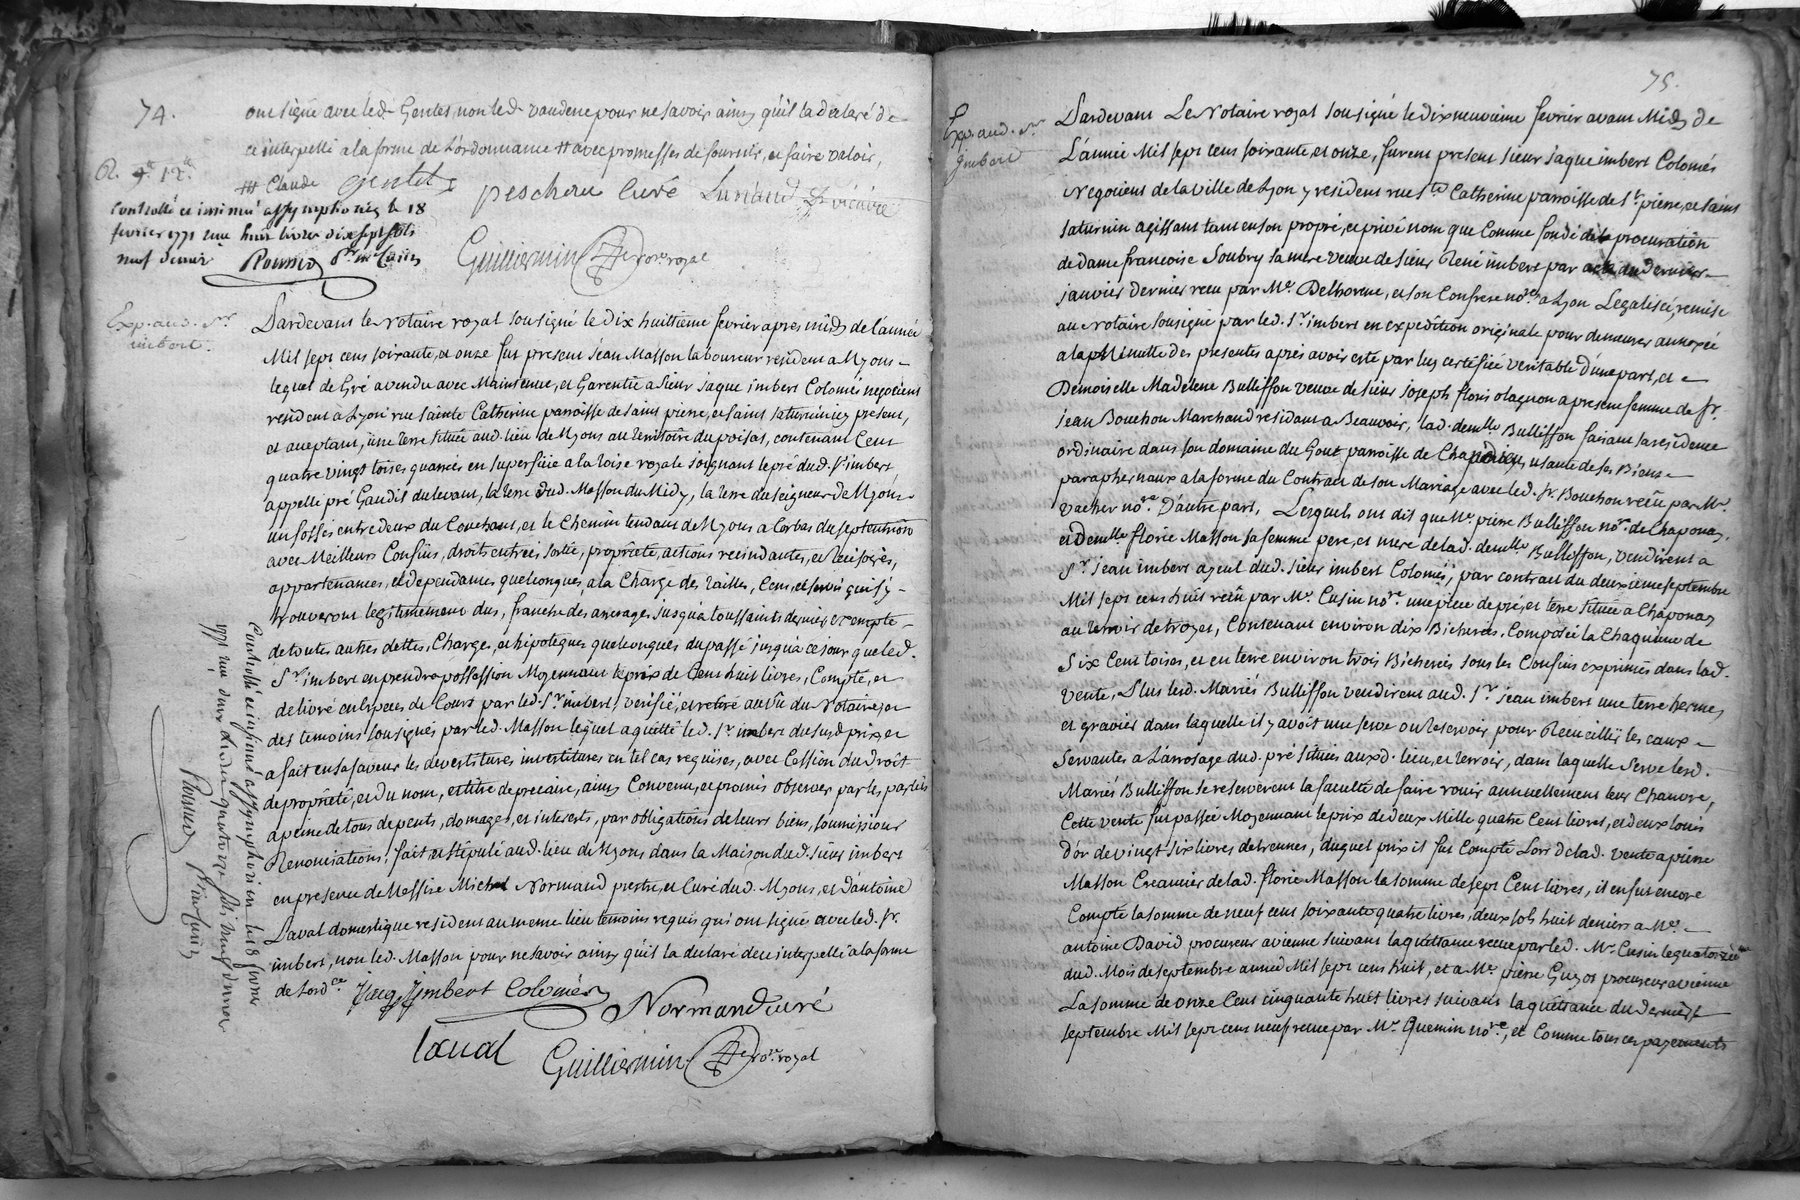 74.
ont signé avec led. Gentet non led. vaudene pour ne savoir ainsy quil la declaré de
ce interpellé a la forme de L'ordonnance # avec promesses de fournir, et faire valoir,
# Claude gentet peschene Curé Lunaud Vicaire
Controllé et insinué a st symphorien le 18
fevrier 1771 reçu huit livres dix sept sols
neuf denier
Guilliermin nore. royal
Exp. au d. Sr.
imbert.
Pardevant le Notaire royal soussigné le dix huittieme fevrier apres midy de l'année
Mil sept cent soixante, et onze fut present jean Masson laboureur resident a Myons
lequel de Gré a vendu avec Maintenue, et Garentie a Sieur jaque imbert Colomés negocient
resident a Lyon rue sainte Catherine parroisse de saint pierre, et saint saturnin icy present,
et aceptant, une terre située aud. lieu de Myons au territoire du poisat, contenant Cent
quatre vingt toises quarrées en superficie a la toise royale joignant le pré dud. Sr. imbert
appellé pré Gaudit du levant, la terre dud. Masson du Midy, la terre du seigneur de Myons
un fossés entredeux du Couchant, et le Chemin tendant de Myons a Corbas du septentrion
avec Meilleurs Confins, droits entrées, sortie, proprieté, actions rescindantes, et rescisoires,
appartenances, et dependances quelconques, a la Charge des tailles, Cens, et servis qui s'y
trouveront legitimement dus, franche des arerages jusqu'a toussaints dernier exempte
de toutes autres dettes, Charges, et hipoteques quelconques du passé jusqu'a ce jour que led.
Sr. imbert en prendra possession Moyennant le prix de Cent huit livres, Compté, et
delivré en Especes de Cours par led. Sr. imbert, verifié, et retiré au vû du Notaire, et
des temoins soussignés par led. Masson lequel a quitté led. Sr. imbert du susd. prix, et
a fait en sa faveur les devestitures investitures en tel cas requises, avec Cession du droit
de proprieté, et du nom, et titre de precaire, ainsy Convenu, et promis observer par les parties
a peine de tous depents, domages, et interests, par obligations de leurs biens, soumissions
Renonciations, fait et stipulé aud. lieu de Myons dans la Maison dud. sieur imbert
en presence de Messire Michel Normand prestre, et Curé dud. Myons, et d'antoine
Laval domestique resident au meme lieu temoins requis qui ont signé avec led. Sr.
imbert, non led. Masson pour ne savoir ainsy quil la declaré de ce interpellé a la forme
de l'ordce. Jacq Jmbert Colomés Normand curé
laval Guilliermin nore. royal
Controllé et insinué a st symphorien le 18 fevrier
1771 reçu
75.
Exp. au d. Sr.
jmbert
Pardevant Le Notaire royal soussigné le dixneuvieme fevrier avant Midy de
L'année Mil sept cent soixante, et onze, furent present sieur jaque imbert Colomés
Negocient de la ville de Lyon y resident rue Ste. Catherine parroisse de St. pierre, et saint
saturnin agissant tant en son propre, et privé nom que Comme fondé de la procuration
de dame francoise Soubry sa mere veuve de sieur René imbert par acte du dernier
janvier dernier recu par Me. Delhorme, et son Confrere nores. a Lyon Legalisée, remise
au Notaire soussigné par led. Sr. imbert en expedition originale pour demeurer annexée
a la Minutte des presentes apres avoir esté par luy certifiée veritable d'une part, et
Demoiselle Madelene Bulliffon veuve de sieur joseph floris olagnon a present femme de Sr.
jean Bouchon Marchand residant a Beauvoir, lad. demlle. Bulliffon faisant sa residence
ordinaire dans son domaine du Gout parroisse de Chaponay, usante de ses Biens
paraphernaux a la forme du Contract de son Mariage avec led. Sr. Bouchon recu par Me.
vacher nore. D'autre part, Lesquels ont dit que Me. pierre Bulliffon nore. de Chaponay,
et demlle. florie Masson sa femme pere, et mere de lad. demlle. Bulliffon, vendirent a
Sr. jean imbert ayeul dud. sieur imbert Colomés, par contract du deuxieme septembre
Mil sept cent huit recu par Me. Cusin nore. une piece de pré, et terre située a Chaponay
au terroir de troyes, Contenant environ dix Bicherées, Composée la Chaqu'une de
Six Cent toises, et en terre environ trois Bicherées sous les Confins exprimés dans lad.
vente, Plus lesd. Mariés Bulliffon vendirent aud. Sr. jean imbert une terre hermes
et gravier dans laquelle il y avoit une serve ou reservoir pour Recueillir les eaux
Servantes a L'arrosage dud. pré située auxd. lieu, et terroir, dans laquelle Serve lesd.
Mariés Bulliffon se reserverent la faculté de faire rouir annuellement leur Chanvre,
Cette vente fut passée Moyennant le prix de deux Mille quatre Cent livres, et deux louis
d'or de vingt six livres d'etrennes, duquel prix il fut Compté Lors de lad. vente a pierre
Masson Creancier de lad. florie Masson la somme de sept Cent livres, il en fut encore
Compté la somme de neuf cent soixante quatre livres, deux sols huit deniers a Me.
antoine David procureur a vienne suivant la quittance recue par led. Me. Cusin le quatorzieme
dud. Mois de septembre année Mil sept cent huit, et a Me. pierre Guyot procureur a vienne
La somme de onze Cent cinquante huit livres suivant la quittance du dernier
septembre Mil sept cent neuf recue par Me. Quemin nore., et Comme tous ces payements